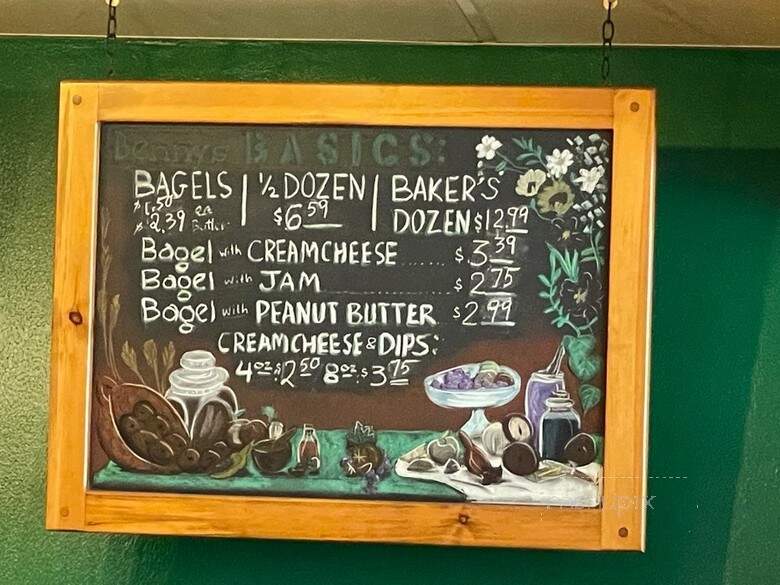 Benny's BASICS:
BAGELS | ½ DOZEN | BAKER'S
$1.50 ea
$2.39 Butter $6 59 DOZEN $12.99
Bagel with CREAMCHEESE ...... $3 39
Bagel with JAM ............ $2 75
Bagel with PEANUT BUTTER $2 99
CREAMCHEESE & DIPS:
4oz. $2 50 8oz. $3 75